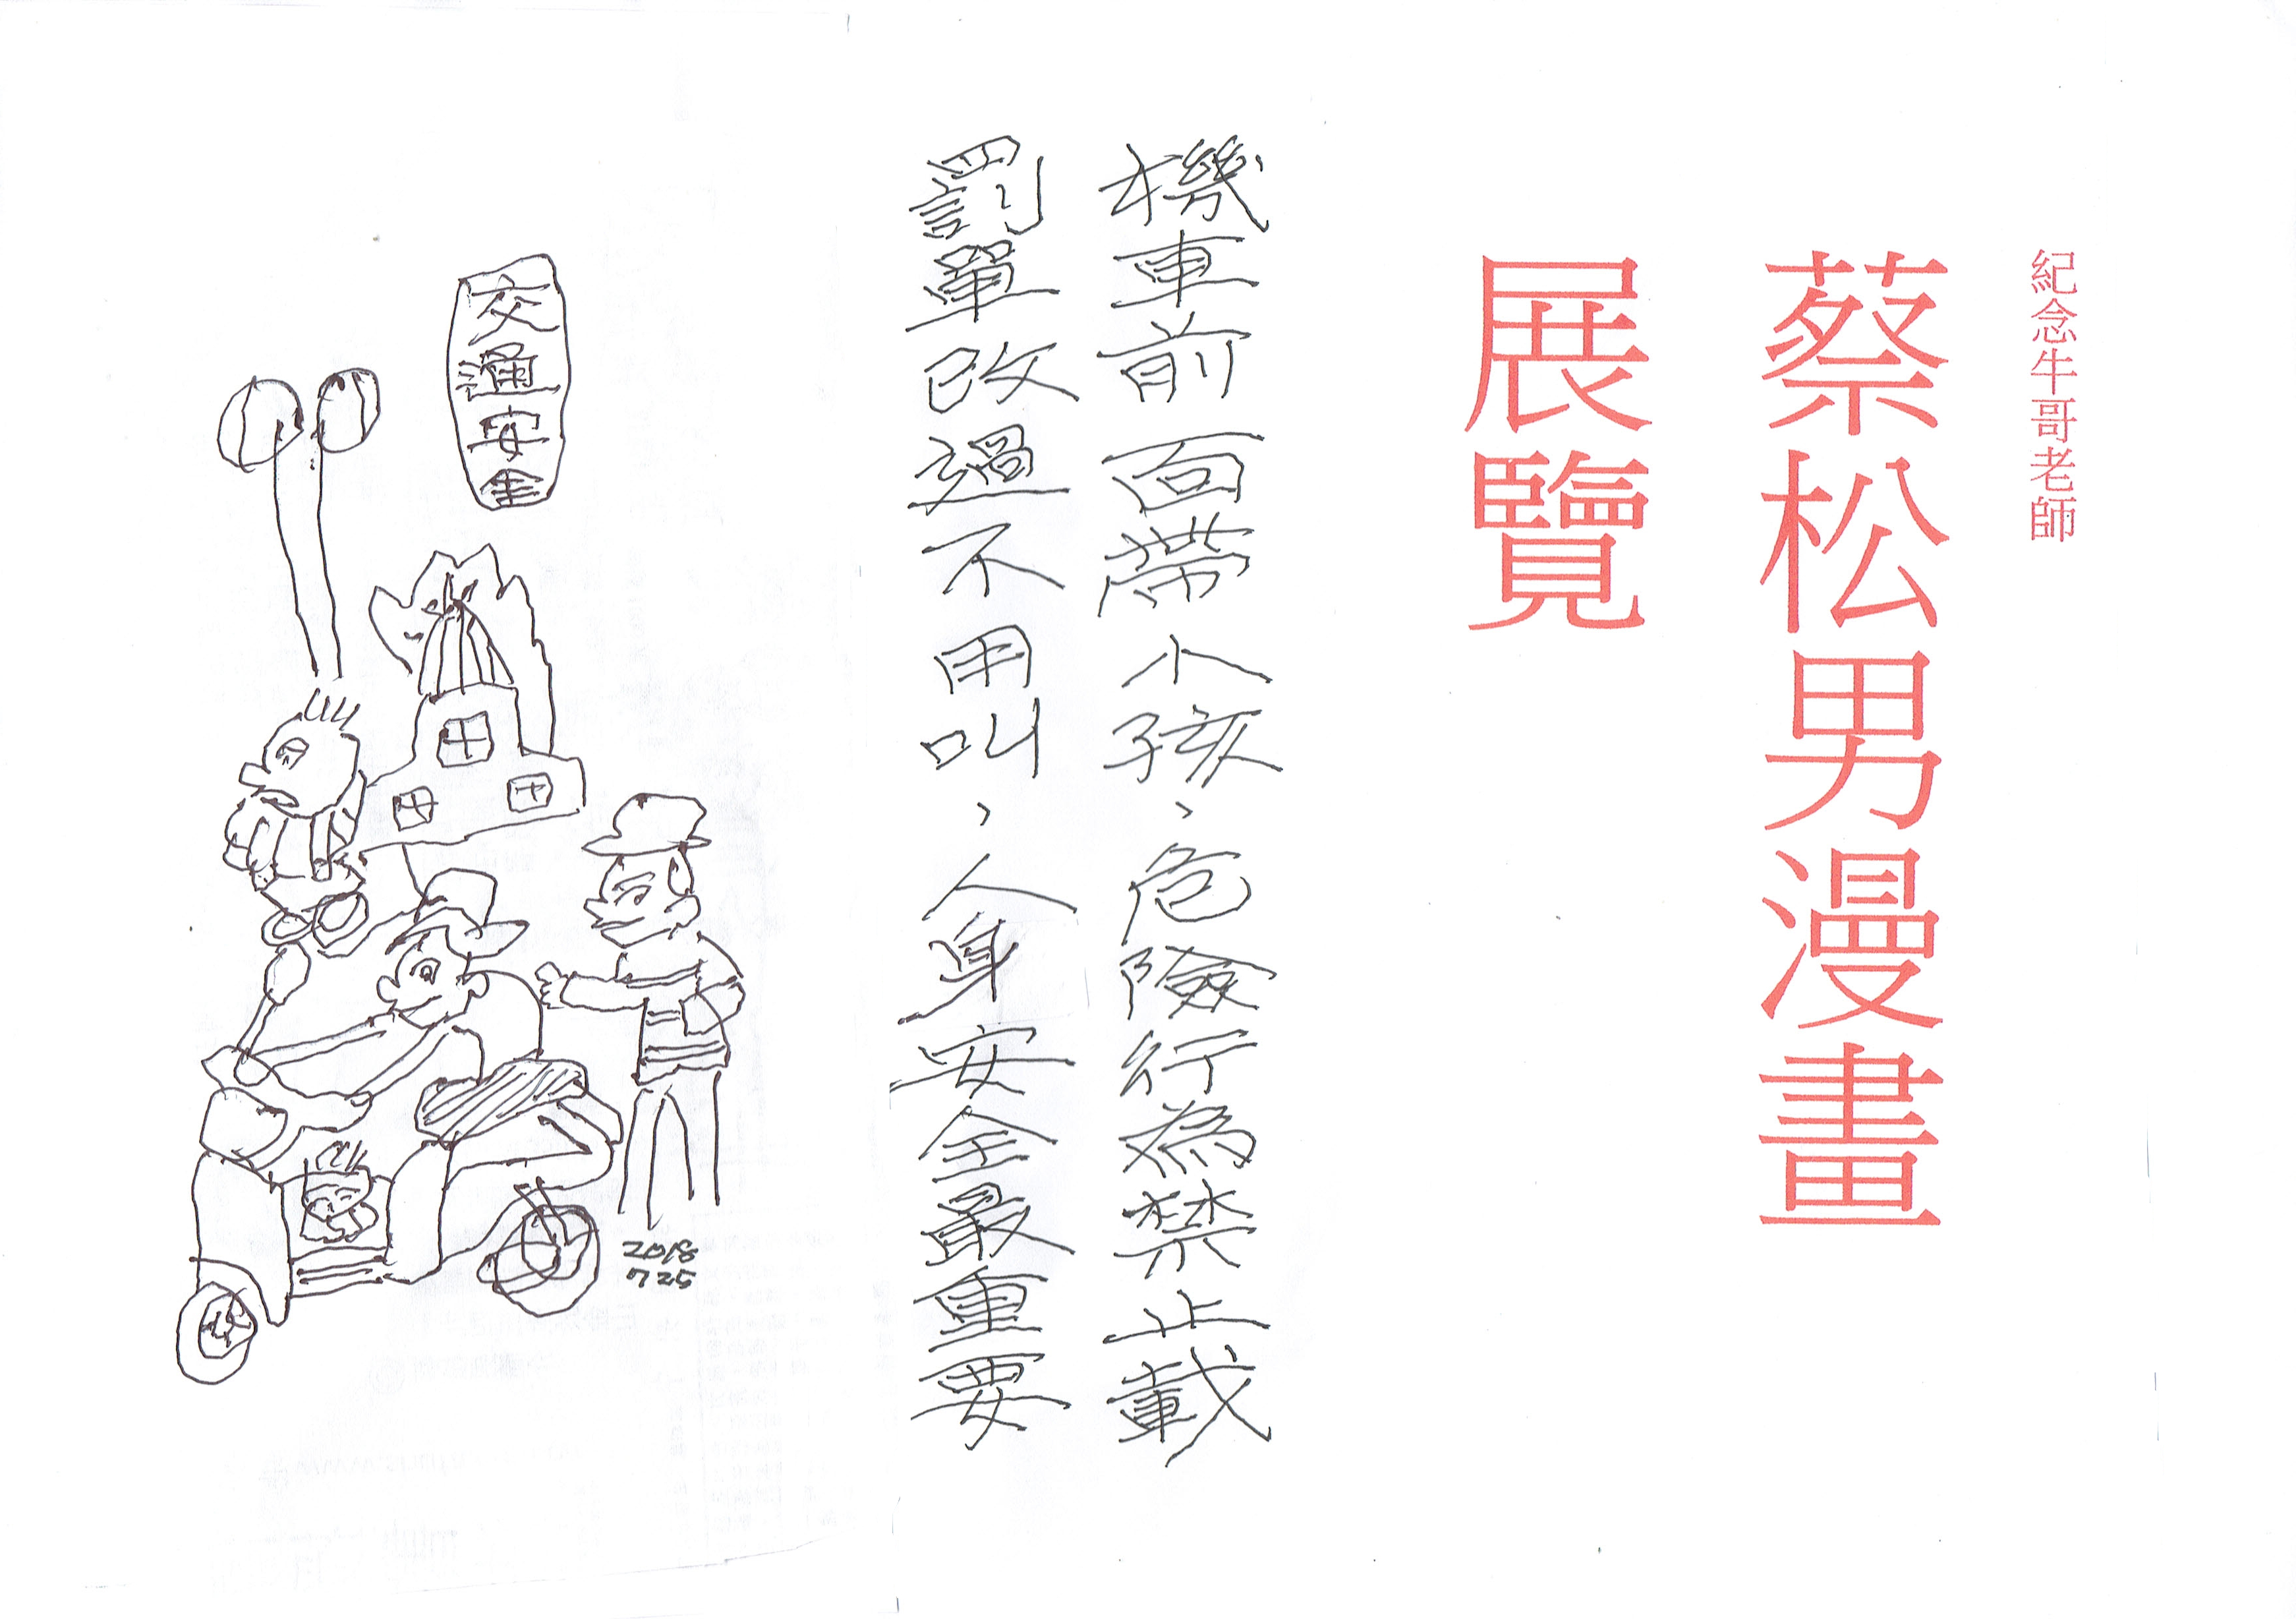 紀念牛哥老師
蔡松男漫畫
展覽
機車前面帶小孩、危險行為禁止載
罰單改過不用叫、人身安全最重要
交通安全
2018
725